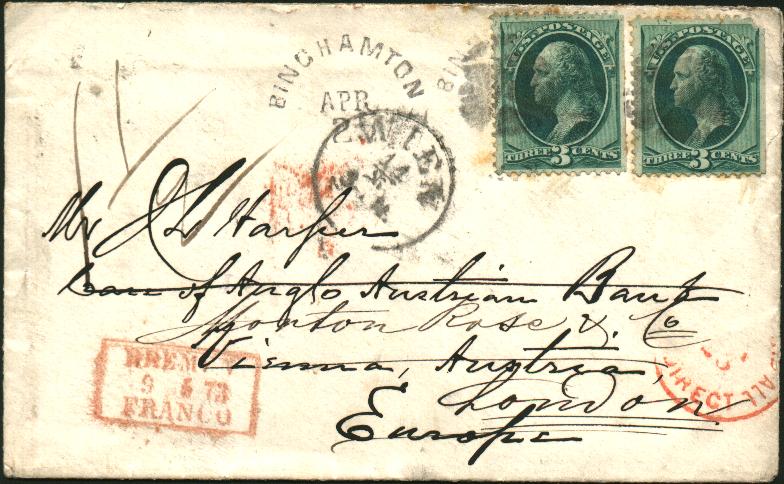 U.S. POSTAGE
THREE 3 CENTS
U.S. POSTAGE
THREE 3 CENTS
BINGHAMTON
APR
BIN
WIEN
Mr J L Harper
Care of Anglo Austrian Bank
Morton Rose & Co
Vienna, Austria,
London
Europe
BREMEN
9 5 73
FRANCO
DIRECT